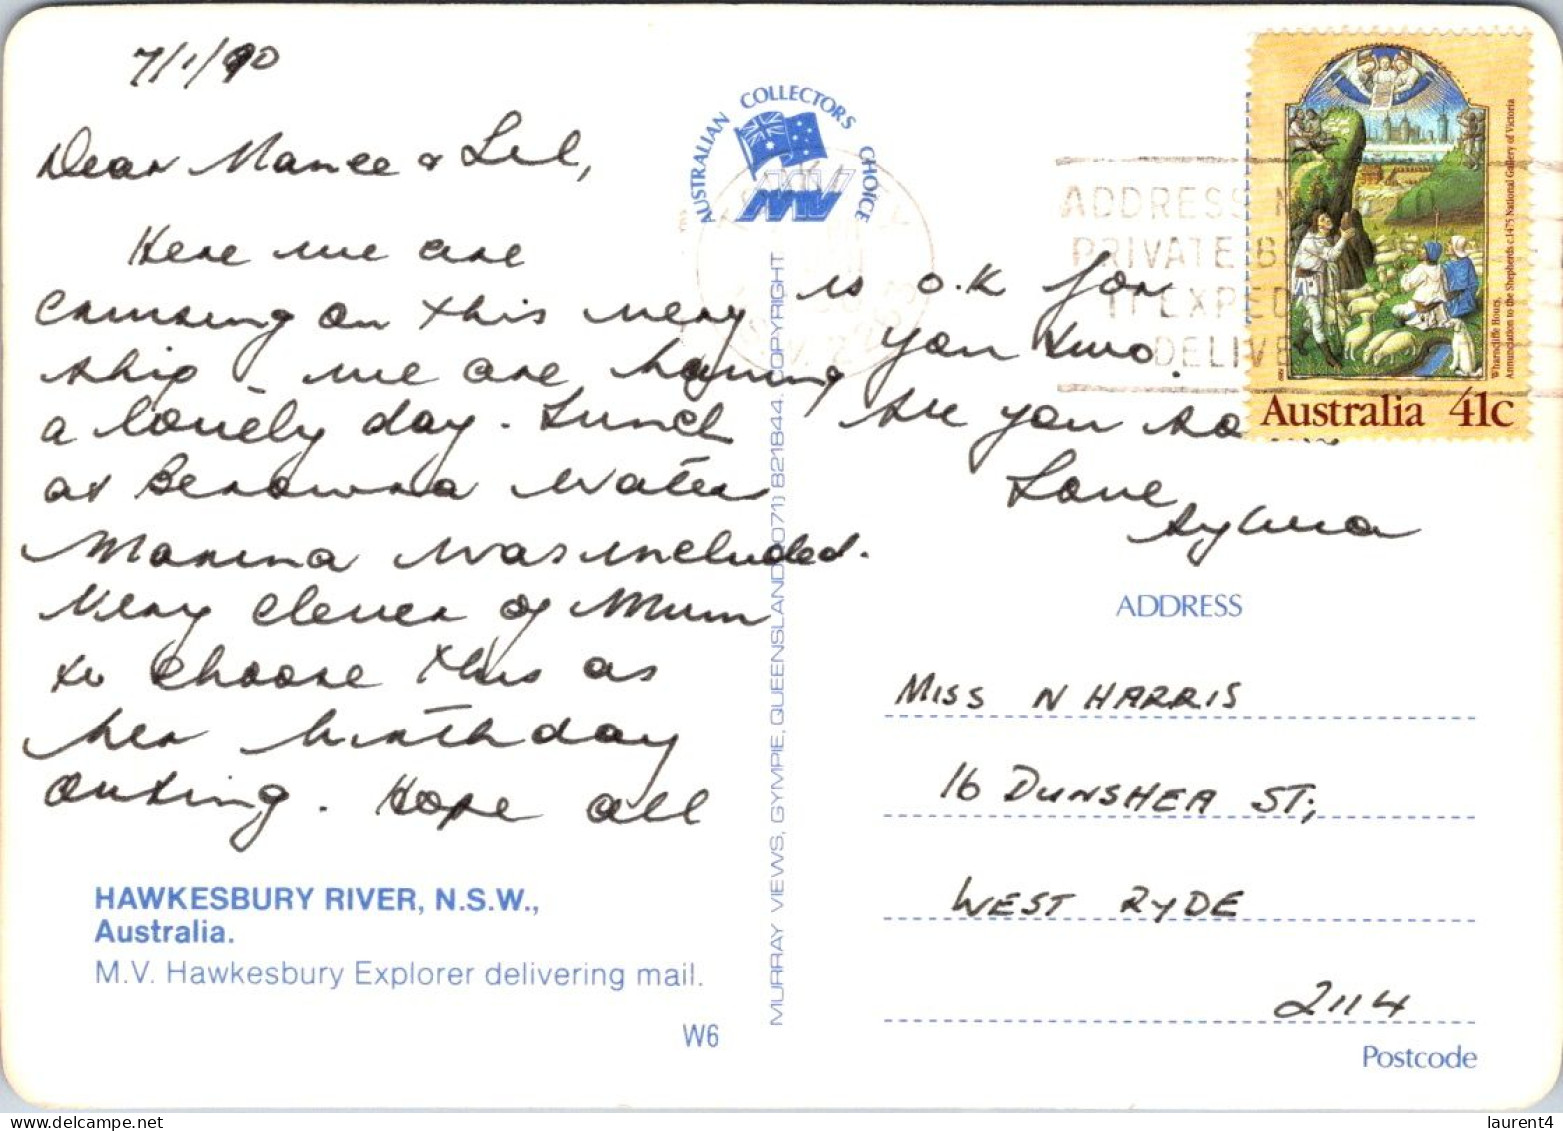 7/1/90
Dear Nance & Lil,
Here we are
cruising on this very
ship - we are having
a lovely day. Lunch
at Berowra Water
Marina was included.
Very clever of Mum
to choose this as
her birthday
outing. Hope all
is o.k for
you two.
See you so
Love,
Sylvia
HAWKESBURY RIVER, N.S.W.,
Australia.
M.V. Hawkesbury Explorer delivering mail.
W6
AUSTRALIAN COLLECTORS CHOICE
MV
MURRAY VIEWS, GYMPIE, QUEENSLAND (071) 821844. COPYRIGHT
ADDRESS
PRIVATE
EXPED
DELIVE
Wharncliffe Hours,
Annunciation to the Shepherds c.1475 National Gallery of Victoria
Australia 41c
ADDRESS
MISS N HARRIS
16 DUNSHEA ST;
WEST RYDE
2114
Postcode
laurent4